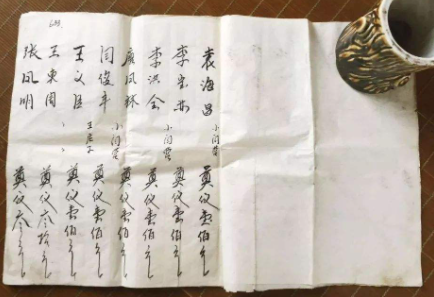 袁海昌 小闫营 奠仪壹佰元
李宏 小闫营 奠仪壹佰元
李洪全 奠仪壹佰元
凤林 小闫营 奠仪壹佰元
闫俊平 王 奠仪壹佰元
王文臣 、 奠仪壹佰元
王东周 、 奠仪叁拾元
张凤明 奠仪